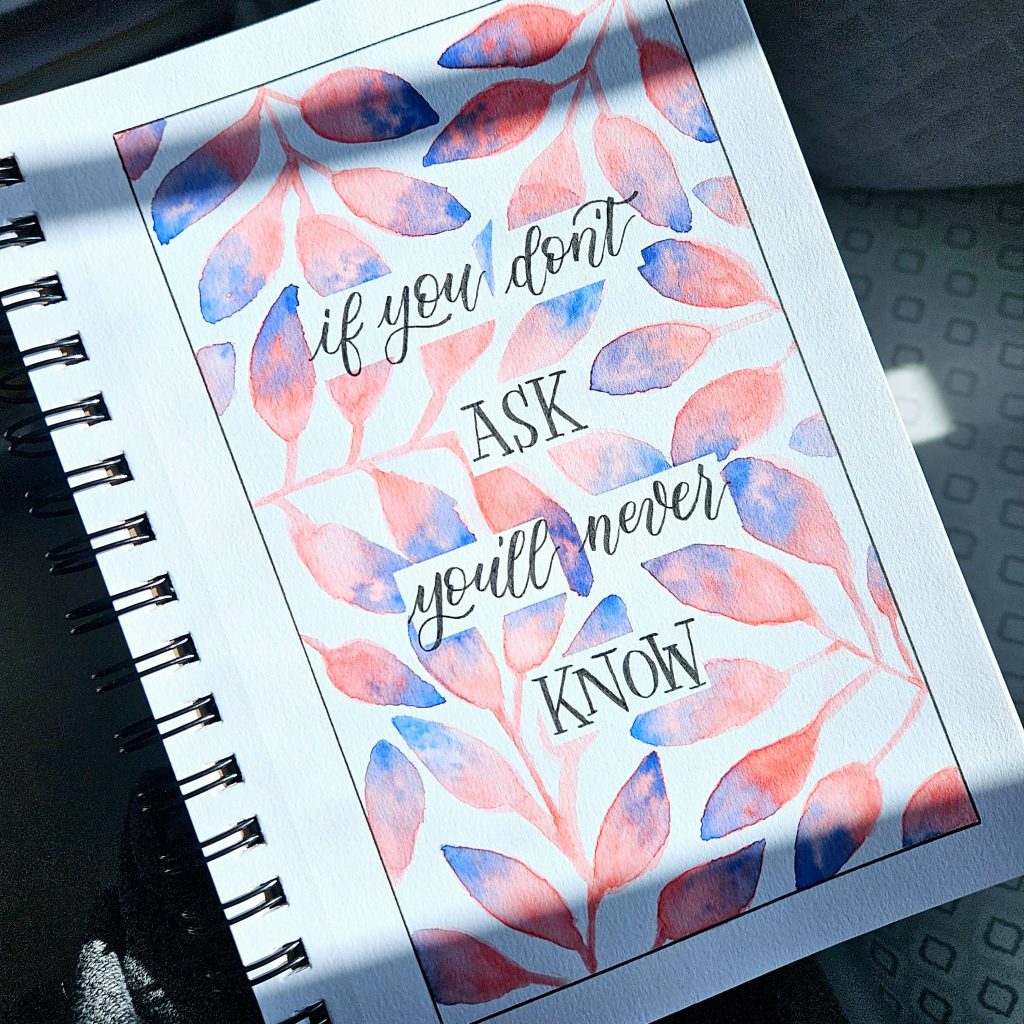 if you don't
ASK
you'll never
KNOW